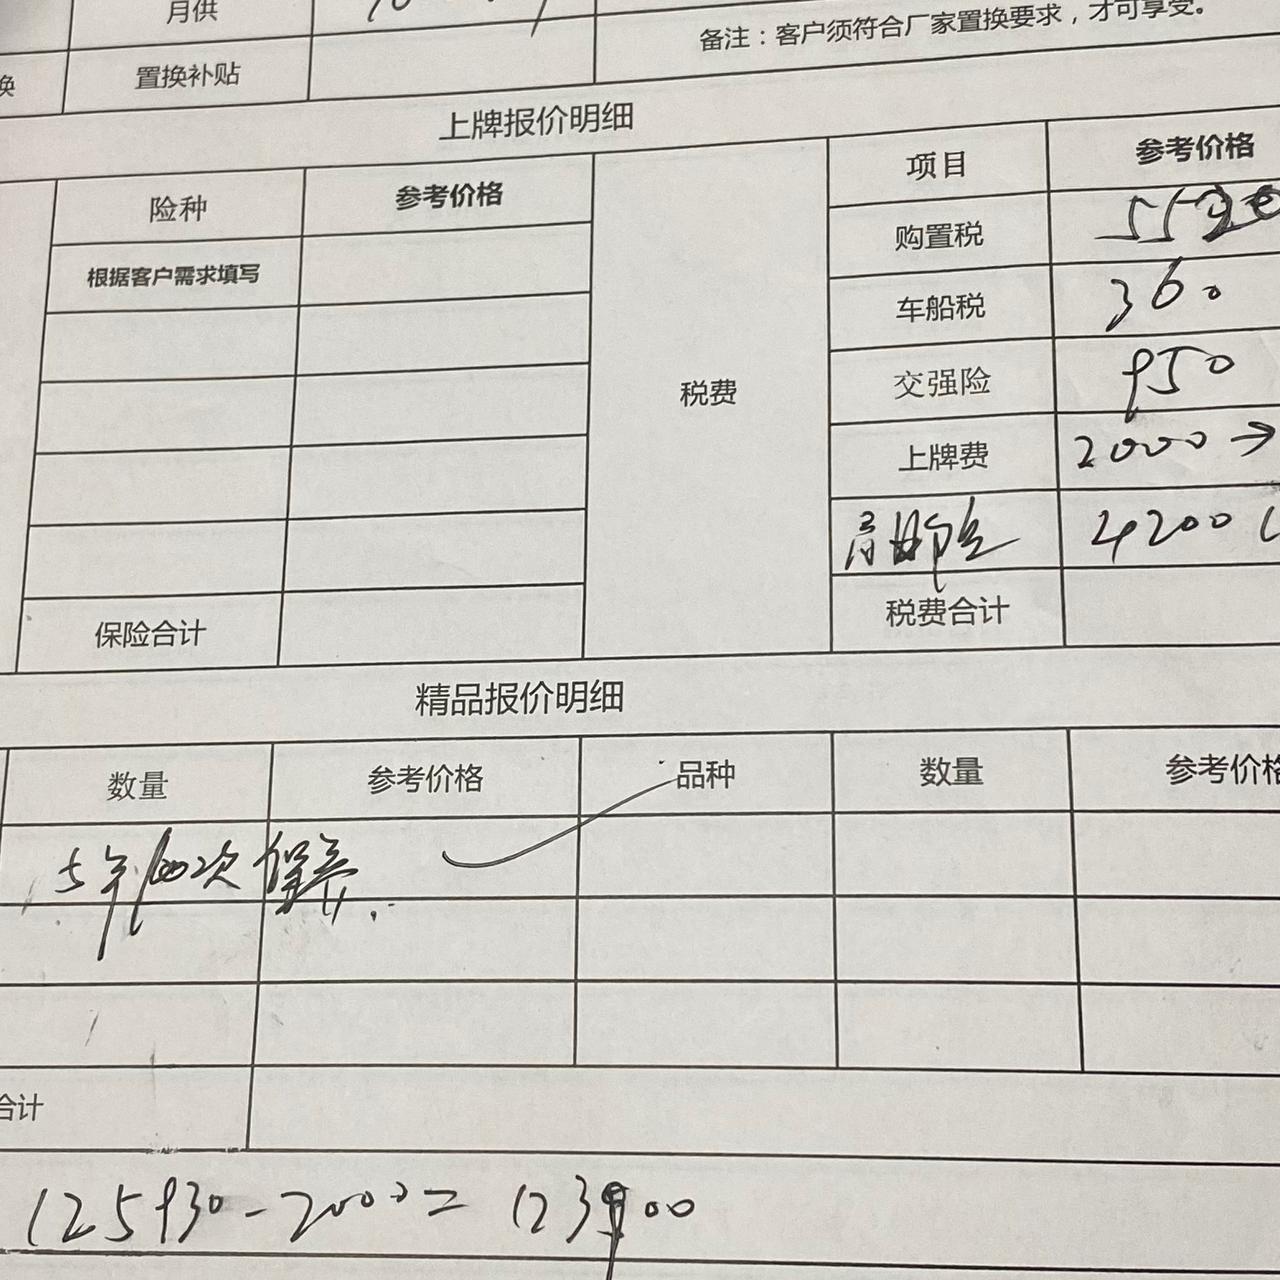 月供
备注：客户须符合厂家置换要求，才可享受。
换 置换补贴
上牌报价明细
险种 参考价格 项目 参考价格
根据客户需求填写 购置税
车船税 360
税费 交强险 950
上牌费 2000→
4200
保险合计 税费合计
精品报价明细
数量 参考价格 品种 数量 参考价格
5年 次保养
合计
125930-2000=123900